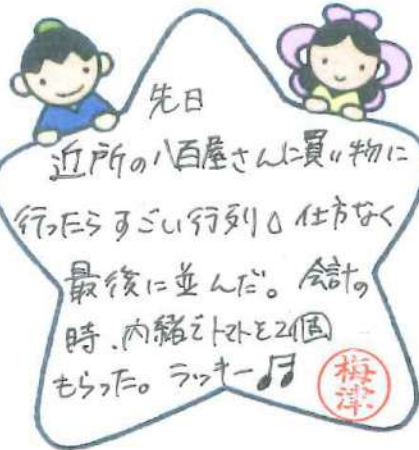 先日
近所の八百屋さんに買い物に
行ったらすごい行列。仕方なく
最後に並んだ。会計の
時、内緒でトマトを2個
もらった。ラッキー♫
梅津